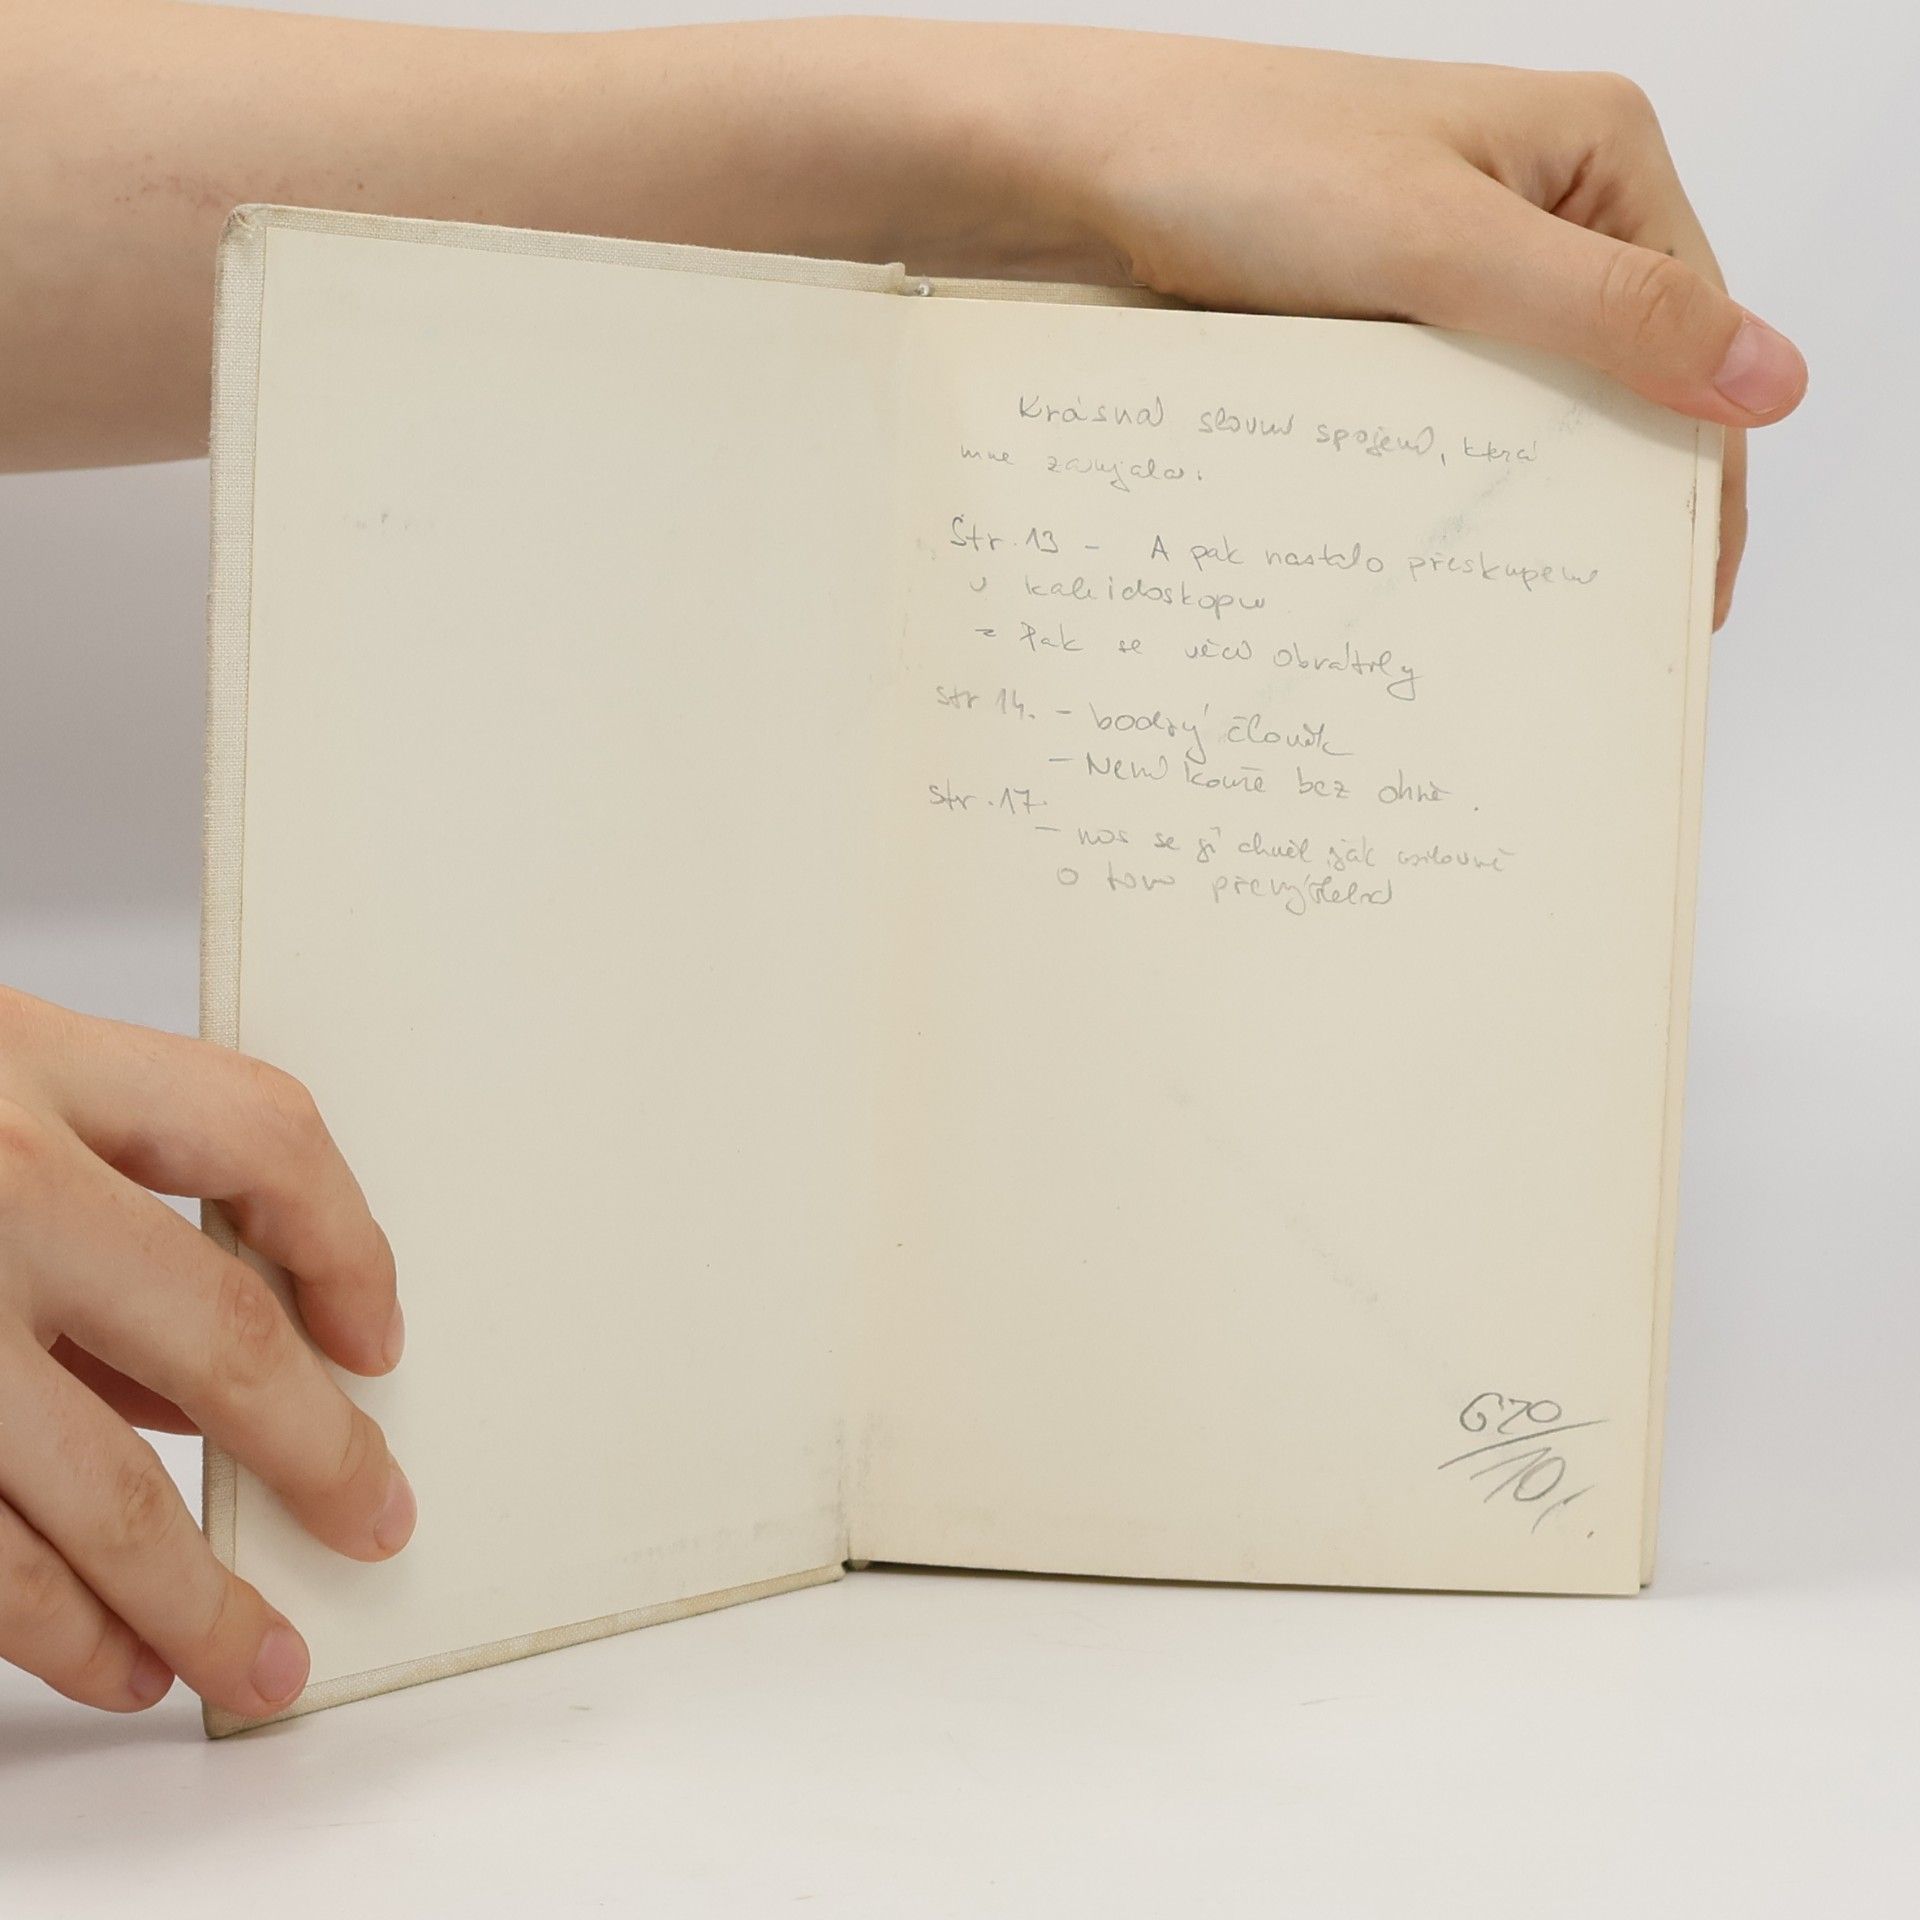 Krásná slovní spojení, která
mne zaujala:
Str. 13 - A pak nastalo přeskupení
v kaleidoskopu
= Pak se věci obrátily
str 14. - bodrý člověk
- Není kouře bez ohně.
str. 17.
- nos se jí chvěl jak usilovně
o tom přemýšlela
670/
10,